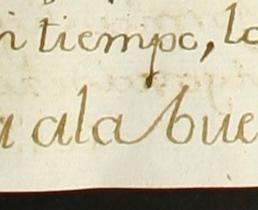 n tiempo, lo
a ala bue